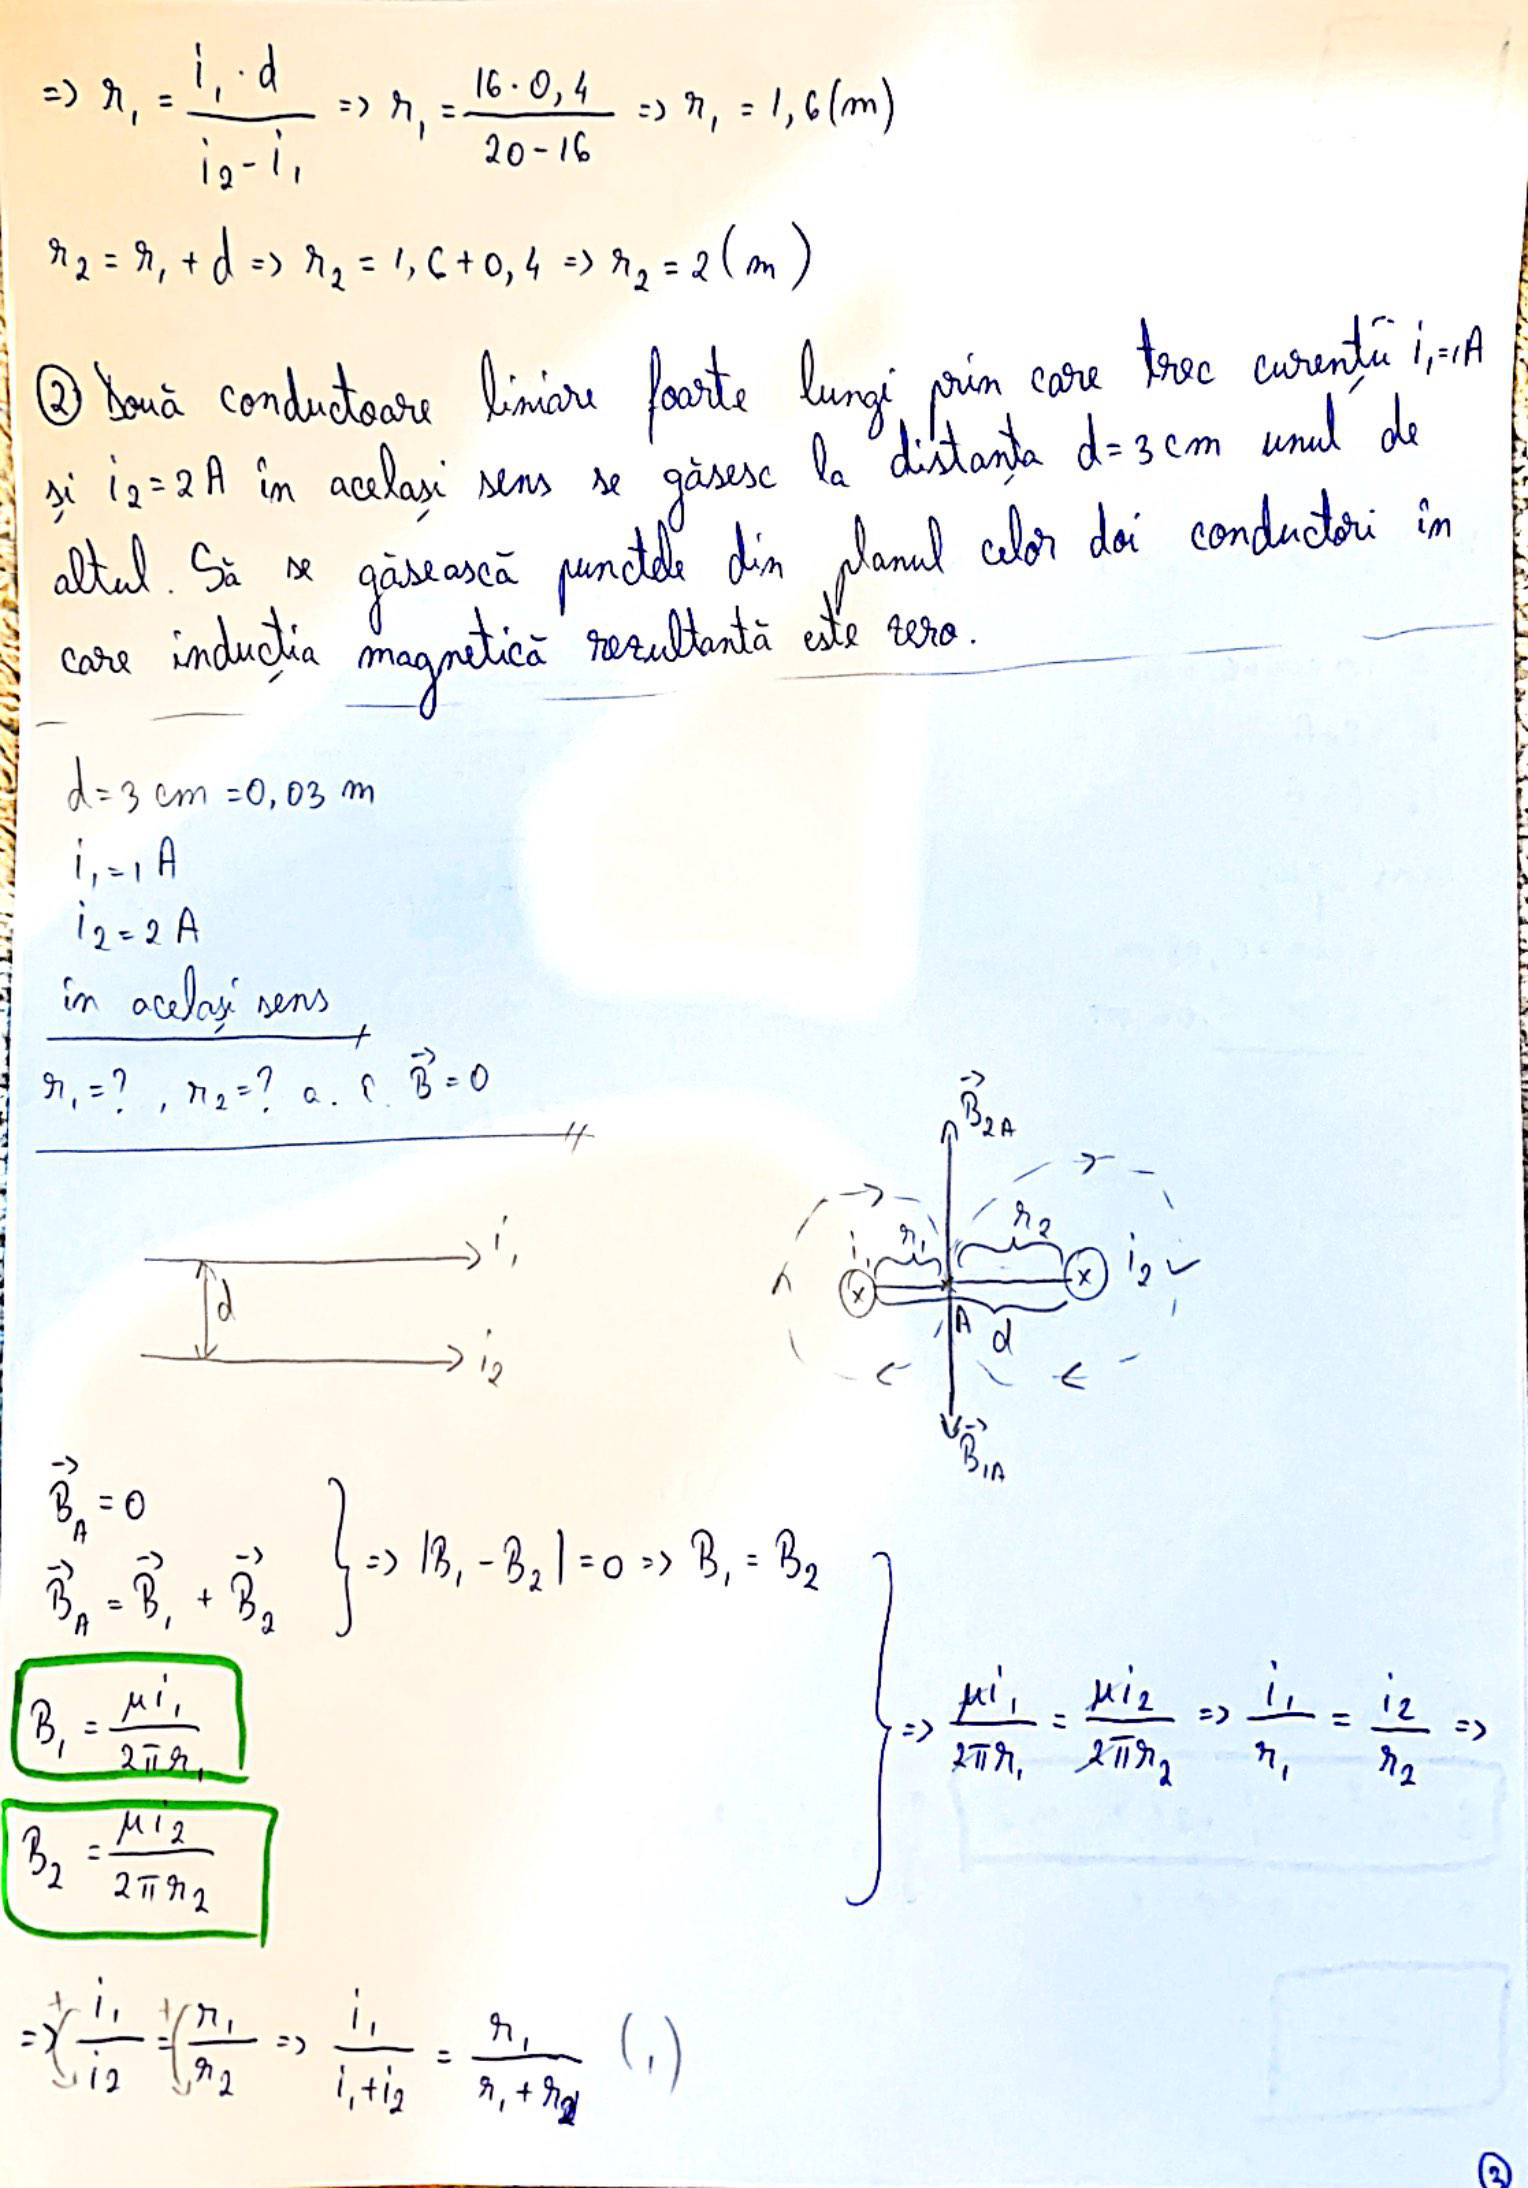 => r₁ = i₁·d / i₂-i₁ => r₁ = 16·0,4 / 20-16 => r₁ = 1,6 (m)
r₂ = r₁ + d => r₂ = 1,6 + 0,4 => r₂ = 2 (m)
② Două conductoare liniare foarte lungi prin care trec curenții i₁=1A
și i₂=2A în același sens se găsesc la distanța d=3 cm unul de
altul. Să se găsească punctele din planul celor doi conductori în
care inducția magnetică rezultantă este zero.
d=3 cm =0,03 m
i₁=1 A
i₂=2 A
în același sens
r₁=? , r₂=? a. î. B⃗=0
B⃗₂A
r₁ r₂
i₁ x x i₂
A d
B⃗₁A
i₁
d
i₂
B⃗A = 0
B⃗A = B⃗₁ + B⃗₂ } => |B₁ - B₂| = 0 => B₁ = B₂
B₁ = μi₁ / 2πr₁
B₂ = μi₂ / 2πr₂
} => μi₁ / 2πr₁ = μi₂ / 2πr₂ => i₁ / r₁ = i₂ / r₂ =>
=> + i₁ / i₂ = + r₁ / r₂ => i₁ / i₁+i₂ = r₁ / r₁+r₂ (1)
③